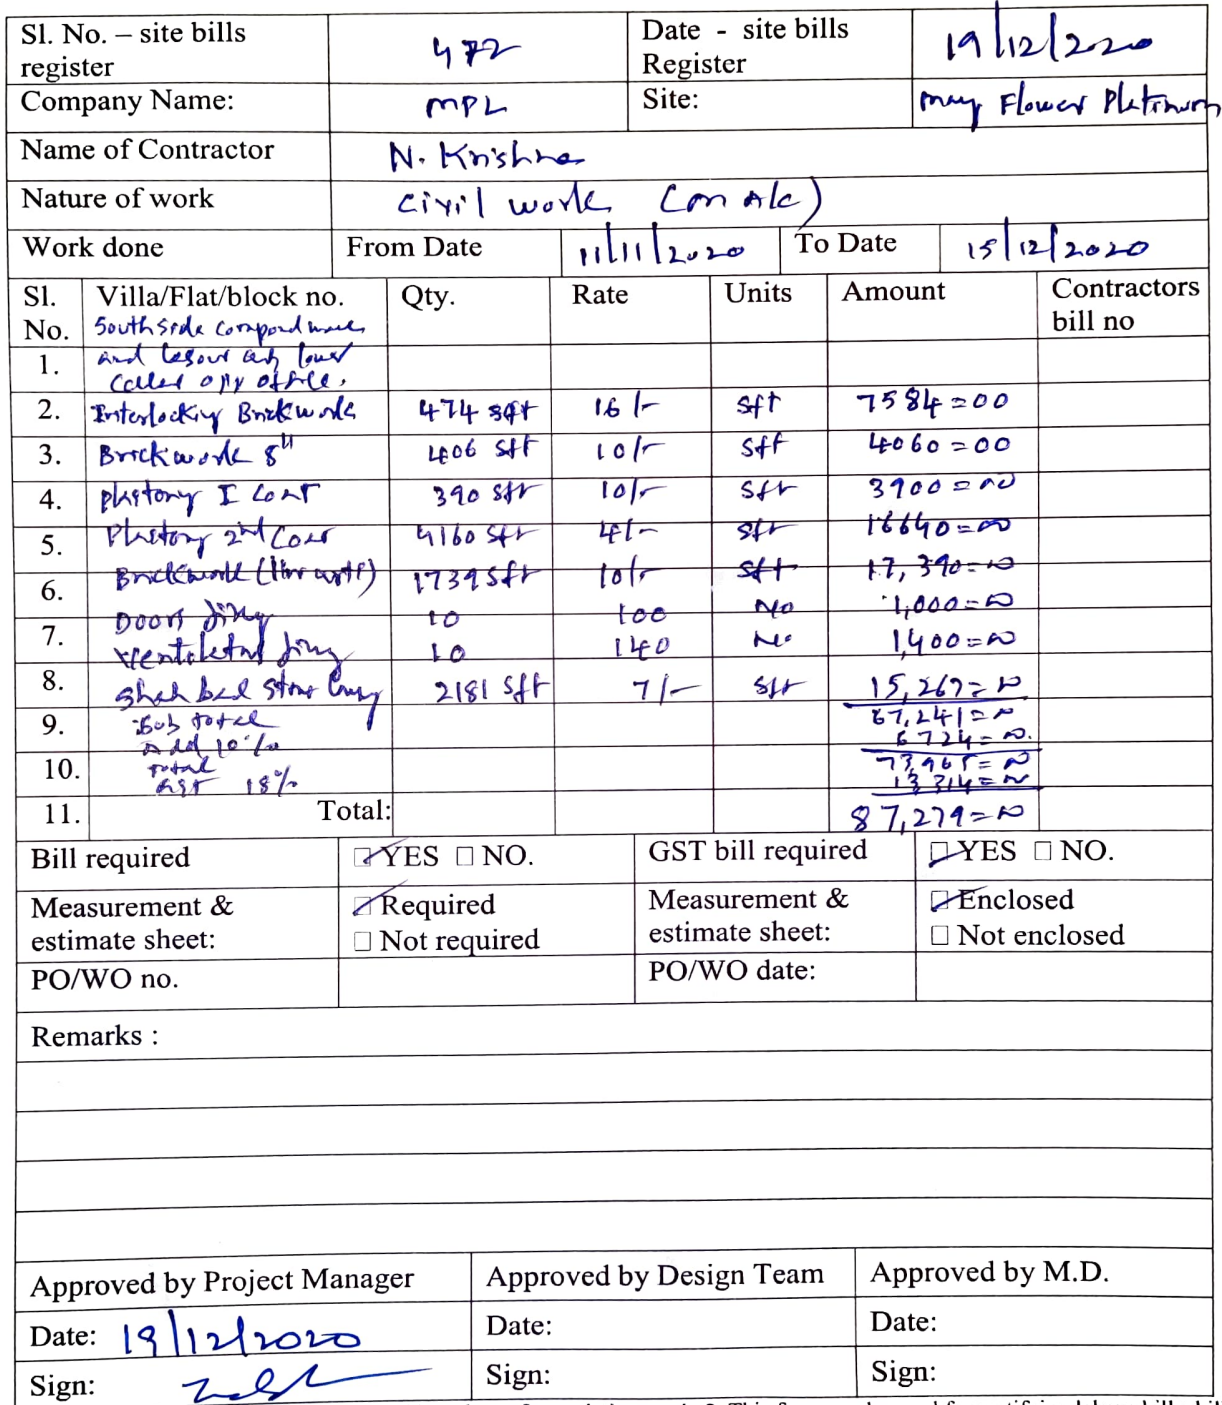 Sl. No. – site bills register 472 Date - site bills Register 19/12/2020
Company Name: MPL Site: May Flower Platinum
Name of Contractor N. Krishna
Nature of work Civil work (on A/c)
Work done From Date 11/11/2020 To Date 15/12/2020
Sl. No. Villa/Flat/block no. Qty. Rate Units Amount Contractors bill no
South side compound
1. and lower
opp office.
2. Interlocking Brickwork 474 sft 16/- Sft 7584=00
3. Brickwork 8" 406 sft 10/- Sft 4060=00
4. I Coat 390 sft 10/- Sft 3900=00
5. 2nd Coat 4160 sft 4/- Sft 16640=00
6. Brickwork 1739 sft 10/- Sft 17,390=00
Doors 10 100 No 1,000=00
7. 10 140 No 1,400=00
8. stone 2181 sft 7/- Sft 15,267=00
9. Sub total 67,241=00
Add 10% 6724=00.
10. Total 73,965=00
GST 18% 13,314=00
11. Total: 87,279=00
Bill required YES NO. GST bill required YES NO.
Measurement & estimate sheet: Required Not required Measurement & estimate sheet: Enclosed Not enclosed
PO/WO no. PO/WO date:
Remarks :
Approved by Project Manager Approved by Design Team Approved by M.D.
Date: 19/12/2020 Date: Date:
Sign: Sign: Sign: